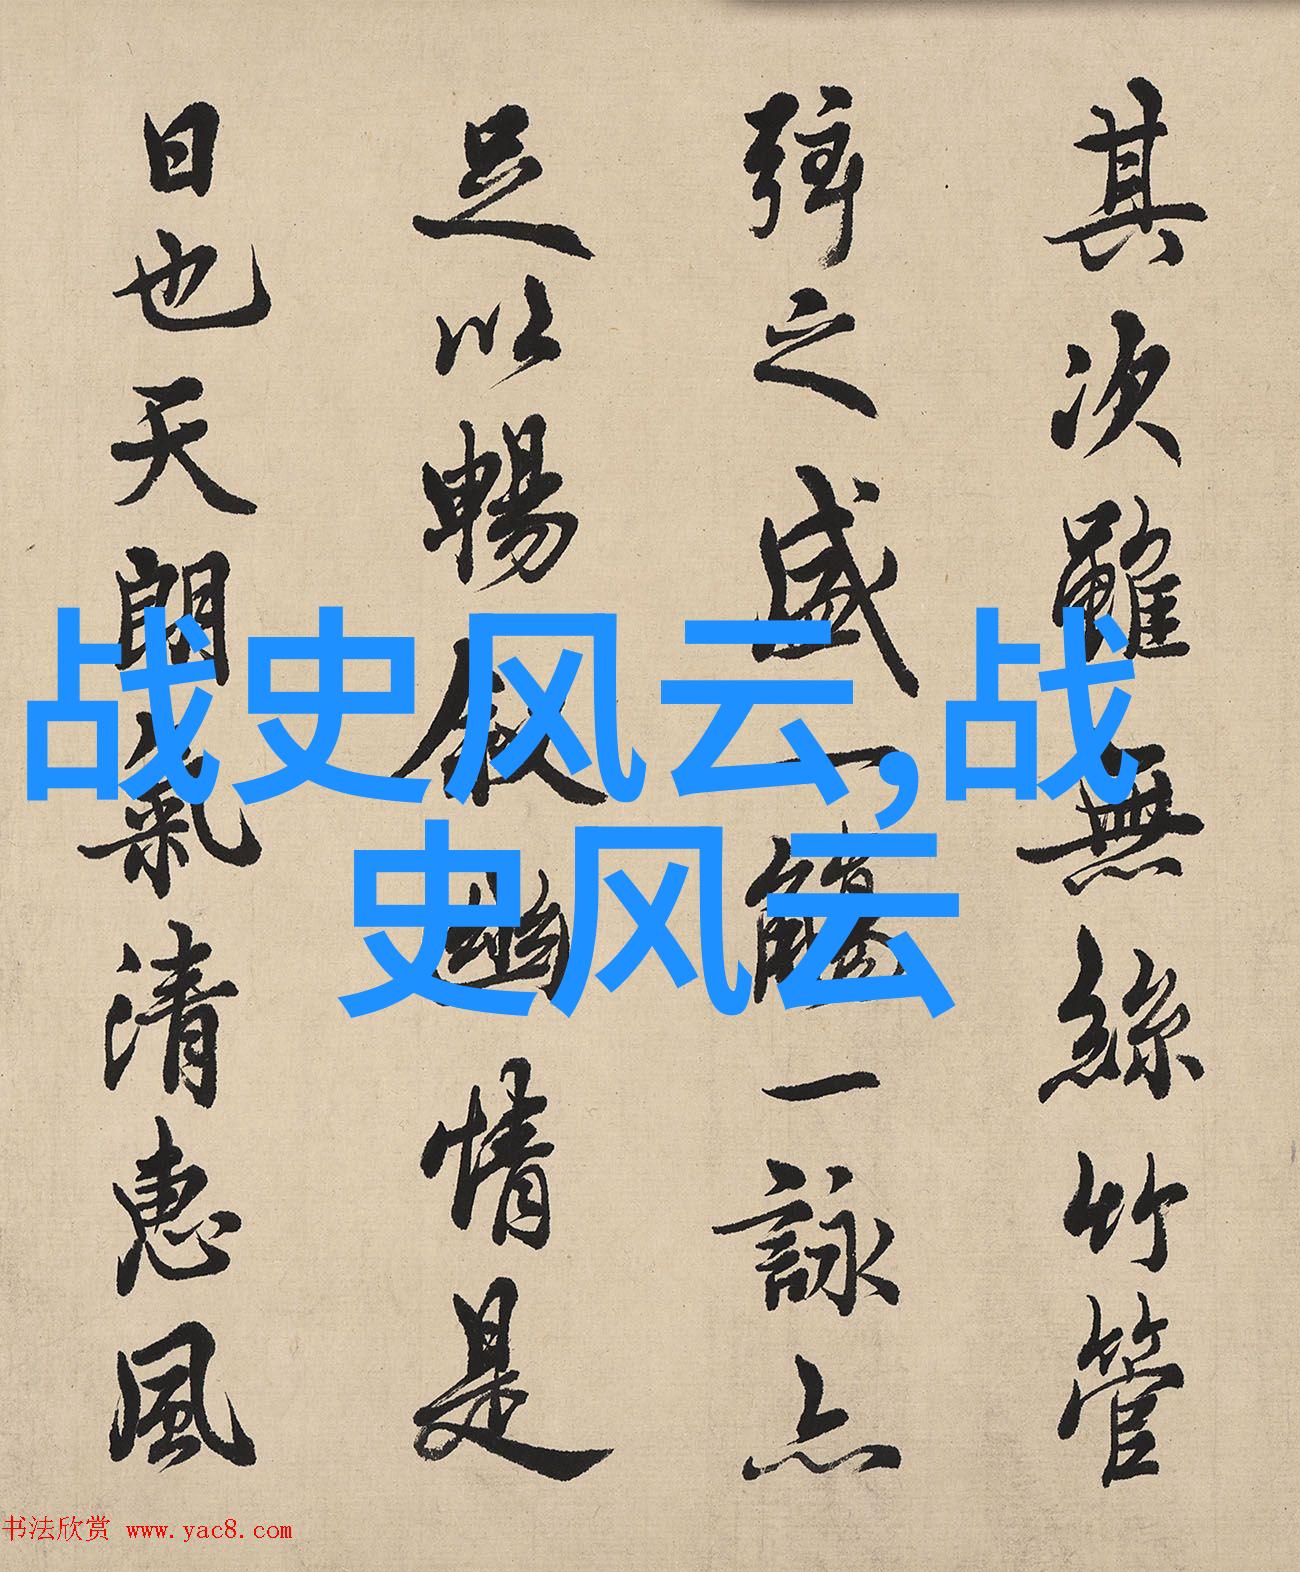 其次雖無絲竹管
弦之盛一觴一詠亦
足以暢敘幽情是
日也天朗氣清惠風
战史风云,战
史风云
书法欣赏 www.yac8.com